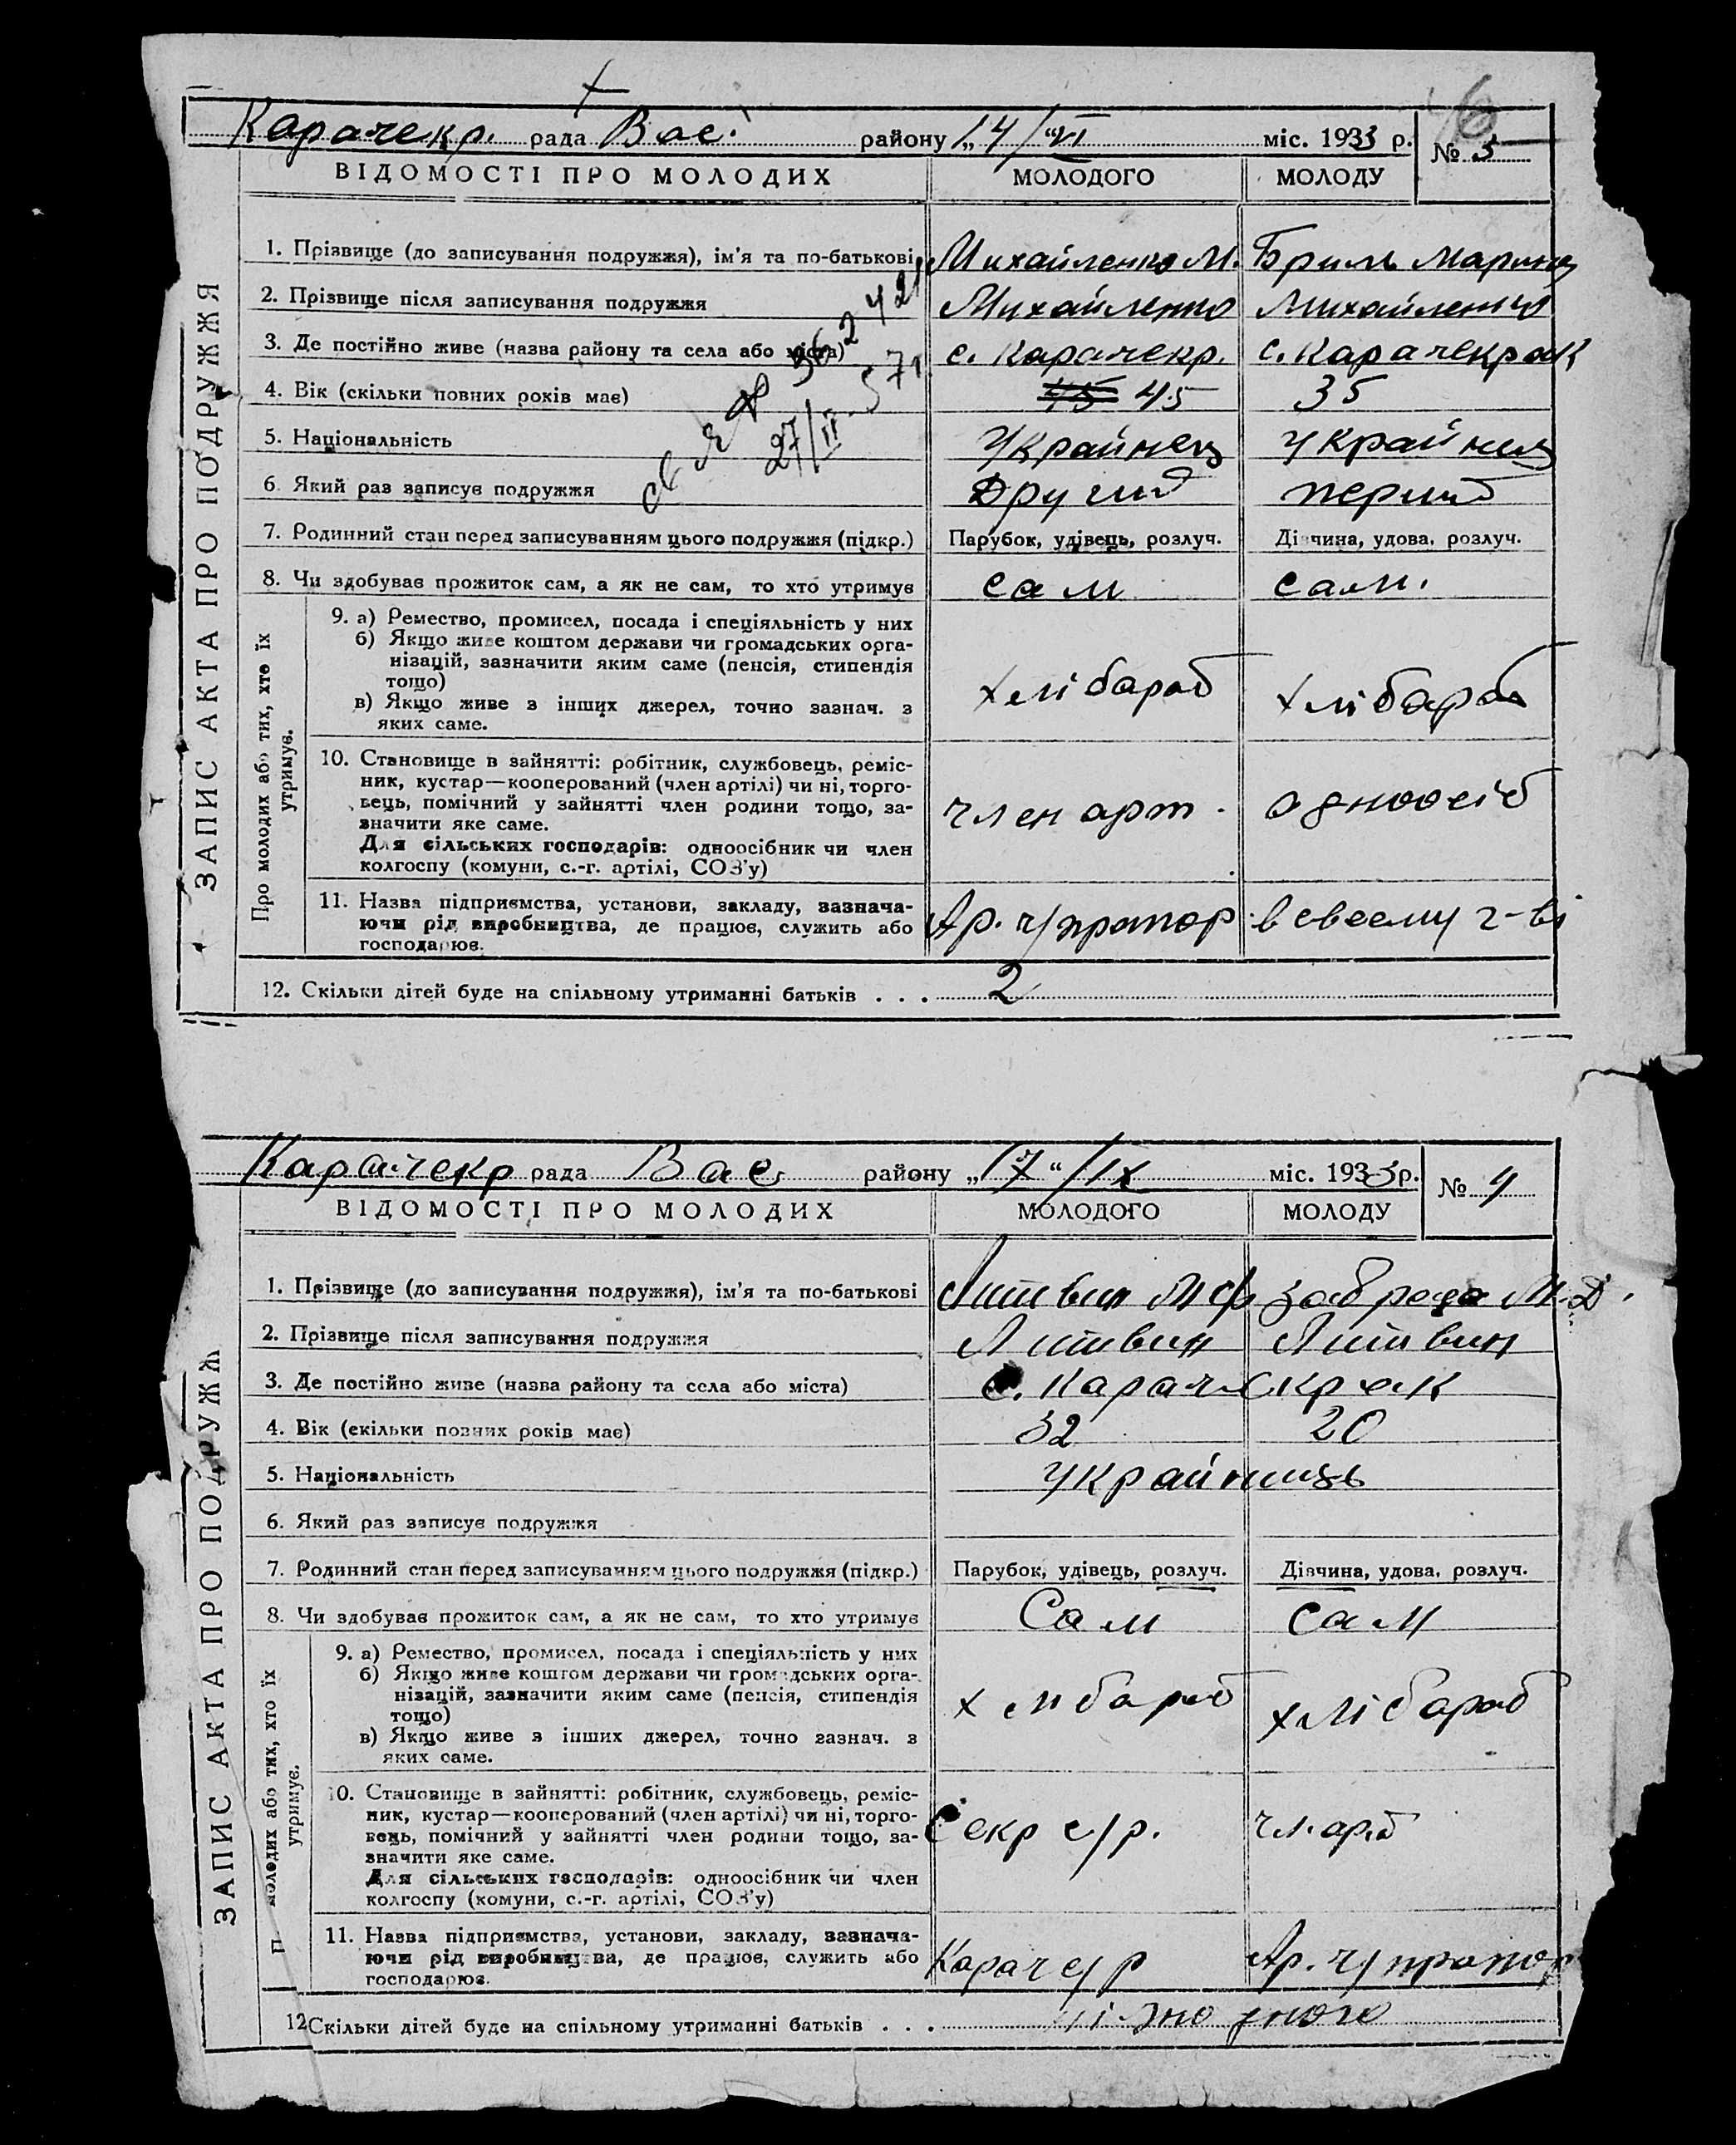 46
Карачекр. рада Вас. району „14/“VI міс. 1933 р.
№ 3
ВІДОМОСТІ ПРО МОЛОДИХ МОЛОДОГО МОЛОДУ
ЗАПИС АКТА ПРО ПОДРУЖЖЯ
1. Прізвище (до записування подружжя), ім'я та по-батькові Михайленко М. Бриль Марина
2. Прізвище після записування подружжя Михайленко Михайленко
3. Де постійно живе (назва району та села або міста) с. Карачекр. с. Карачекрак
4. Вік (скільки повних років має) 45 45 35
27/II-57
5. Національність Украйнец Украйнец
6. Який раз записує подружжя Другий перший
7. Родинний стан перед записуванням цього подружжя (підкр.) Парубок, удівець, розлуч. Дівчина, удова, розлуч.
8. Чи здобував прожиток сам, а як не сам, то хто утримує сам сам.
Про молодих або тих, хто їх утримує.
9. а) Ремество, промисел, посада і спеціяльність у них
б) Якщо живе коштом держави чи громадських орга-
нізацій, зазначити яким саме (пенсія, стипендія
тощо) хлібароб хлібароб
в) Якщо живе з інших джерел, точно зазнач. з
яких саме.
10. Становище в зайнятті: робітник, службовець, реміс-
ник, кустар—кооперований (член артілі) чи ні, торго-
вець, помічний у зайнятті член родини тощо, за- член арт. одноосіб
значити яке саме.
Для сільських господарів: одноосібник чи член
колгоспу (комуни, с.-г. артілі, СОЗ'у)
11. Назва підприємства, установи, закладу, зазнача-
ючи рід виробництва, де працює, служить або Ар. ч/прапор в своему г-ві
господарює.
12. Скільки дітей буде на спільному утриманні батьків . . . 2
Карачекр рада Вас. району „17“/IX міс. 1933р.
№ 4
ВІДОМОСТІ ПРО МОЛОДИХ МОЛОДОГО МОЛОДУ
ЗАПИС АКТА ПРО ПОДРУЖЖ
1. Прізвище (до записування подружжя), ім'я та по-батькові Литвин М Ф Заброда М.Д.
2. Прізвище після записування подружжя Литвин Литвин
3. Де постійно живе (назва району та села або міста) с. Карачекрак
4. Вік (скільки повних років має) 32 20
5. Національність Украйниць
6. Який раз записує подружжя
7. Родинний стан перед записуванням цього подружжя (підкр.) Парубок, удівець, розлуч. Дівчина, удова, розлуч.
8. Чи здобував прожиток сам, а як не сам, то хто утримує Сам сам
П молодих або тих, хто їх утримує.
9. а) Ремество, промисел, посада і спеціяльність у них
б) Якщо живе коштом держави чи громадських орга-
нізацій, зазначити яким саме (пенсія, стипендія
тощо) хлібароб хлібароб
в) Якщо живе з інших джерел, точно зазнач. з
яких саме.
10. Становище в зайнятті: робітник, службовець, реміс-
ник, кустар—кооперований (член артілі) чи ні, торго-
вець, помічний у зайнятті член родини тощо, за- Секр с/р. чл. арт
значити яке саме.
Для сільських господарів: одноосібник чи член
колгоспу (комуни, с.-г. артілі, СОЗ'у)
11. Назва підприємства, установи, закладу, зазнача-
ючи рід виробництва, де працює, служить або Карач с/р Ар. ч/прапор
господарює.
12 Скільки дітей буде на спільному утриманні батьків . . .